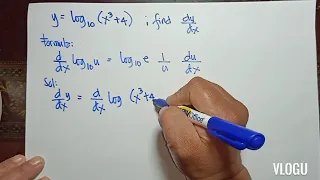 y = log₁₀ (x³+4) ; find dy/dx
formula:
d/dx log₁₀ u = log₁₀ e 1/u du/dx
Sol:
d/dx y = d/dx log (x³+4
VLOGU